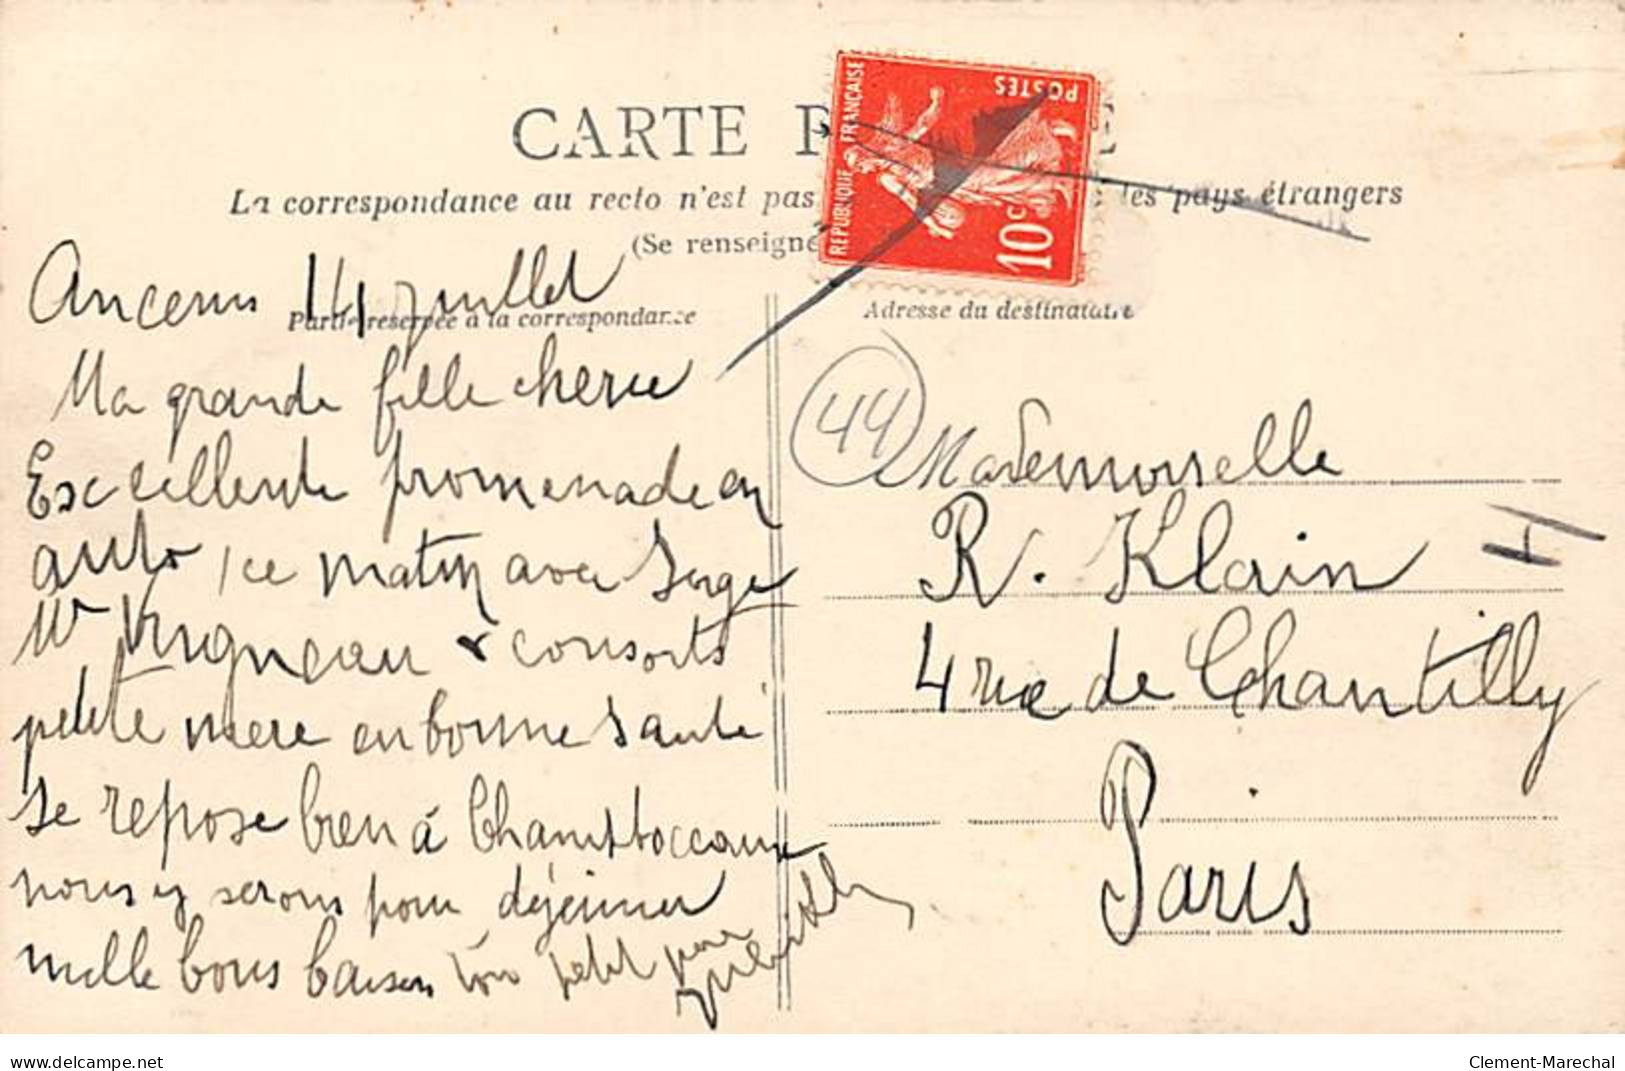 CARTE
La correspondance au recto n'est pas les pays étrangers
(Se renseigne
REPUBLIQUE FRANÇAISE
POSTES
10c
Ancenis 14 juillet
Partie réservée à la correspondance
Adresse du destinataire
Ma grande fille cherie
Excellente promenade en
auto, ce matin avec Serge
Mr Vrigneau & consorts
petite mere en bonne santé
se repose bien à Chamtoceaux
nous y serons pour déjeuner
mille bons baisers ton petit père
44
Mademoiselle
R. Klain
4 rue de Chantilly
Paris
delcampe.net
Clement-Marechal